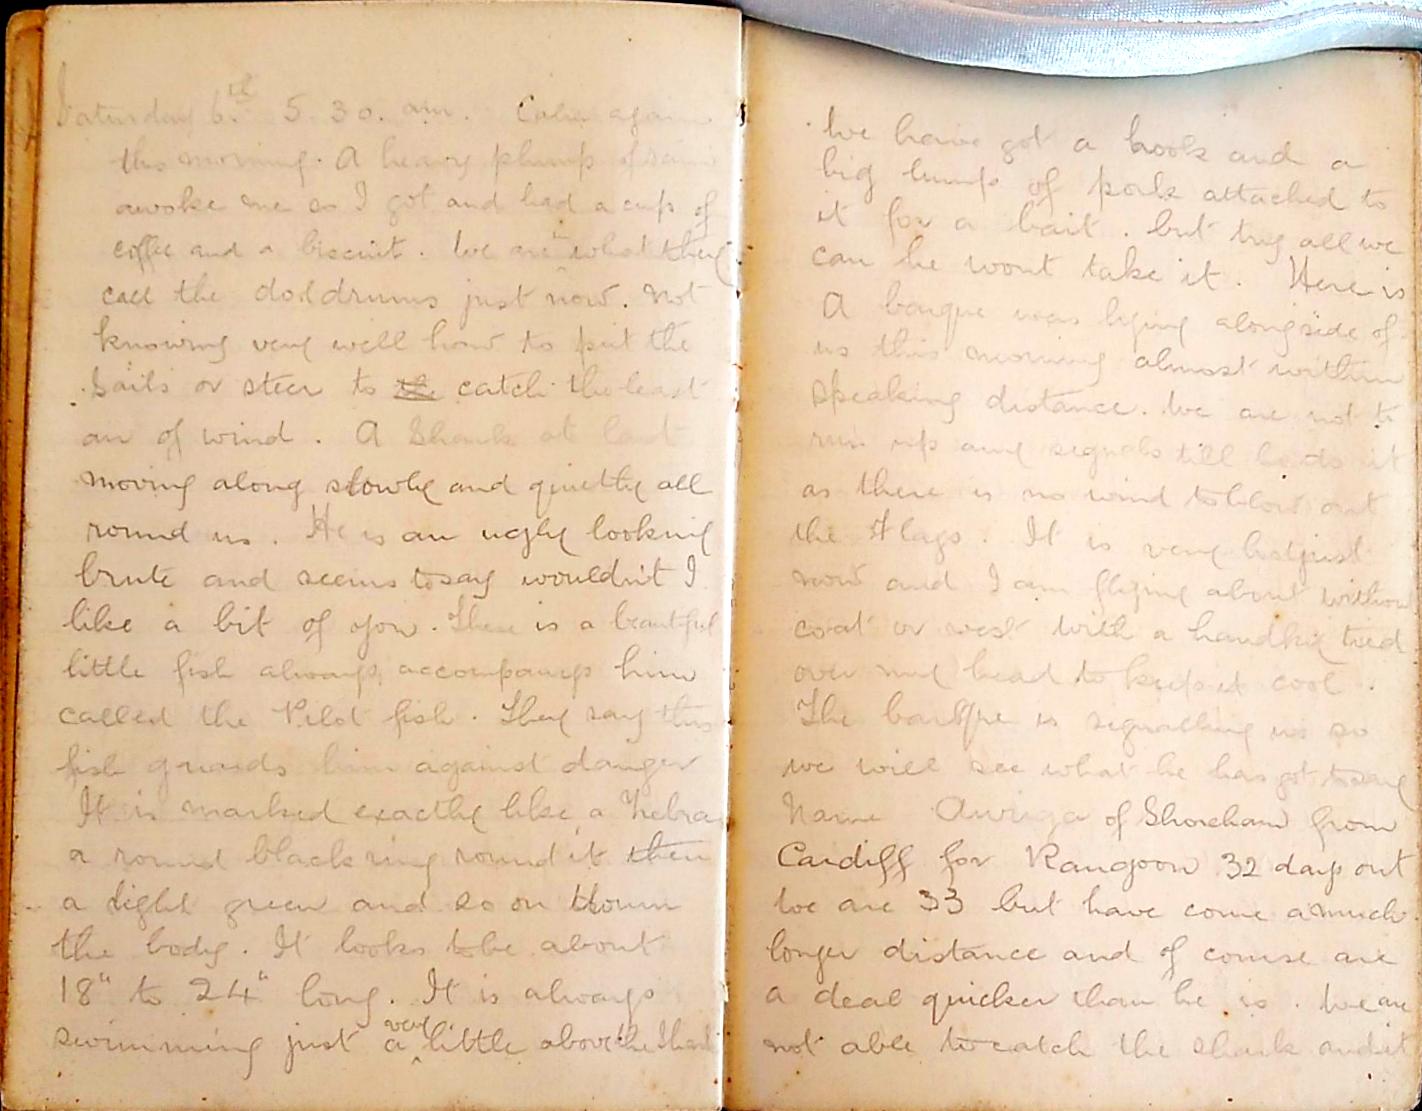 Saturday 6th 5.30. am. Calm again
this morning. A heavy plump of rain
awoke me so I got and had a cup of
coffee and a biscuit. We are in what they
call the doldrums just now. Not
knowing very well how to put the
sails or steer to the catch the least
air of wind. A Shark at last
moving along slowly and quietly all
round us. He is an ugly looking
brute and seems to say wouldn't I
like a bit of you. There is a beautiful
little fish always accompanys him
called the Pilot fish. They say this
fish guards him against danger
It is marked exactly like a Zebra
a round black ring round it then
a light green and so on down
the body. It looks to be about
18" to 24" long. It is always
swimming just a very little above the Shark
We have got a hook and a
big lump of pork attached to
it for a bait. but try all we
can he wont take it. Here is
A barque was lying alongside of
us this morning almost within
speaking distance. We are not to
run up any signals till he does it
as there is no wind to blow out
the Flags. It is very hot just
now and I am flying about without
coat or vest with a handkf tied
over my head to keep it cool.
The barque is signalling us so
we will see what he has got to say
Name Auriga of Shoreham from
Cardiff for Rangoon 32 days out
We are 33 but have come a much
longer distance and of course are
a deal quicker than he is. We are
not able to catch the shark and it